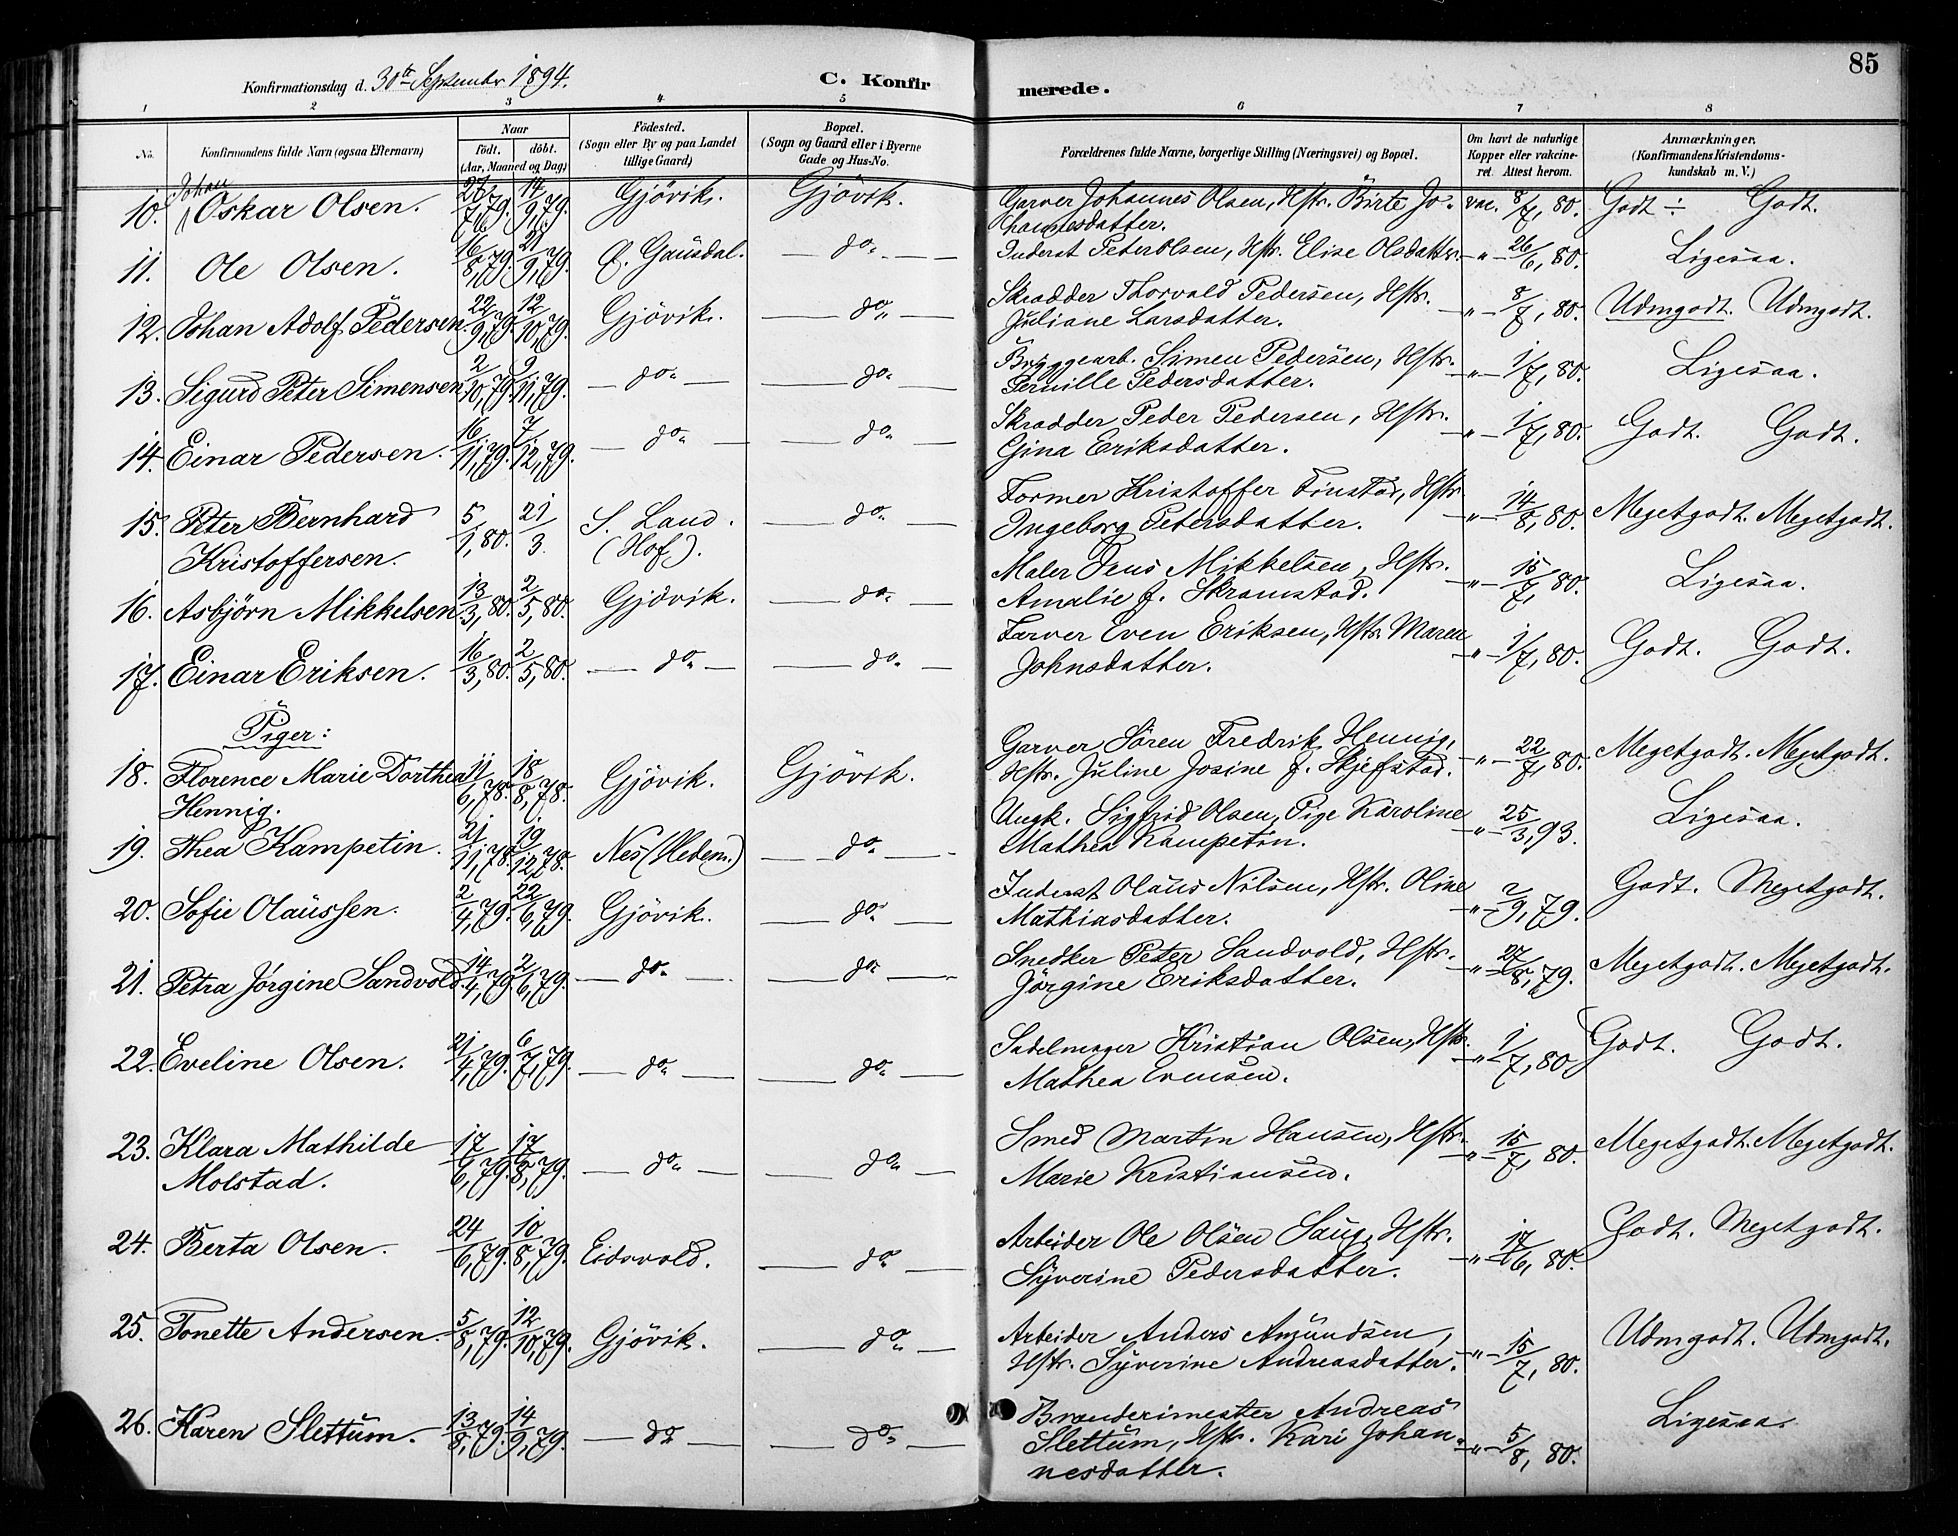 85
Konfirmationsdag d. 30te Septembr 1894. C. Konfirmerede.
1 2 3 4 5 6 7 8
No. Konfirmandens fulde Navn (ogsaa Efternavn) Naar födt. döbt. (Aar, Maaned og Dag) Födested. (Sogn eller By og paa Landet tillige Gaard) Bopæl. (Sogn og Gaard eller i Byerne Gade og Hus-No. Forældrenes fulde Navne, borgerlige Stilling (Næringsvei) og Bopæl. Om havt de naturlige Kopper eller vakcineret. Attest herom. Anmærkninger. (Konfirmandens Kristendomskundskab m. V.)
10. Johan Oskar Olsen. 27/7, 79. 14/9, 79. Gjövik. Gjövik. Garver Johannes Olsen, Hstr. Birte Johannesdatter. vac. 8/7, 80. Godt ÷ Godt.
11. Ole Olsen. 16/8, 79. 21/9, 79. Ø. Gausdal. do Inderst Peter Olsen, Hstr. Elise Olsdatter. " 26/6, 80. Ligesaa.
12. Johan Adolf Pedersen. 22/9, 79. 12/10, 79. Gjövik. do Skrædder Thorvald Pedersen, Hstr. Juliane Larsdatter. " 8/7, 80. Udmgodt. Udmgodt.
13. Sigurd Peter Simensen 2/10, 79. 9/11, 79. do do Bryggearb. Simen Pedersen, Hstr. Pernille Pedersdatter. " 1/7, 80. Ligesaa.
14. Einar Pedersen. 16/11, 79. 7/12, 79. do do Skrædder Peder Pedersen, Hstr. Gina Eriksdatter. " 1/7, 80. Godt. Godt.
15. Peter Bernhard Kristoffersen. 5/1, 80. 21/3. S. Land. (Hof). do Former Kristoffer Finstad, Hstr. Ingeborg Petersdatter. " 14/8, 80. Megetgodt. Megetgodt.
16. Asbjörn Mikkelsen 13/3, 80. 2/5, 80. Gjövik. do Maler Mikkelsen, Hstr. Amalie f. Skramstad. " 15/7, 80. Ligesaa.
17. Einar Eriksen. 16/3, 80. 2/5, 80. do do Farver Even Eriksen, Hstr. Maren Johnsdatter. " 1/7, 80. Godt. Godt.
Piger:
18. Florence Marie Dorthea Hennig. 11/6, 78. 18/8, 78. Gjövik. Gjövik. Garver Sören Fredrik Hennig, Hstr. Juline Josine f. Skjefstad. " 22/7, 80. Megetgodt. Megetgodt.
19. Thea Kampetin. 21/11, 78. 19/12, 78. Nes (Hedem.) do Ungk. Sigfrid Olsen, Pige Karoline Mathea Kampetin. " 25/3, 93. Ligesaa.
20. Sofie Olaussen. 2/4, 79. 22/6, 79. Gjövik. do Inderst Olaus Nilsen, Hstr. Oline Mathiasdatter. " 2/9, 79. Godt. Megetgodt.
21. Petra Jørgine Sandvold. 14/4, 79. 2/6, 79. do do Snedker Peter Sandvold, Hstr. Jörgine Eriksdatter. " 27/8, 79. Megetgodt. Megetgodt.
22. Eveline Olsen. 21/4, 79. 6/7, 79. do do Sadelmager Kristian Olsen, Hstr. Mathea Evensen. " 1/7, 80. Godt. Godt.
23. Klara Mathilde Molstad. 17/6, 79. 17/8, 79. do do Smed Martin Hansen, Hstr. Marie Kristiansen. " 15/7, 80. Megetgodt. Megetgodt.
24. Berta Olsen. 24/6, 79. 10/8, 79. Eidsvold. do Arbeider Ole Olsen Haug, Hstr. Syverine Pedersdatter. " 17/6, 80. Godt. Megetgodt.
25. Tonette Andersen. 5/8, 79. 12/10, 79. Gjövik. do Arbeider Anders Amundsen, Hstr. Syverine Andreasdatter. " 15/7, 80. Udmgodt. Udmgodt.
26. Karen Slettum. 13/8, 79. 14/9, 79. do do Brænderimester Andreas Slettum, Hstr. Kari Johannesdatter. " 5/8, 80. Ligesaa.